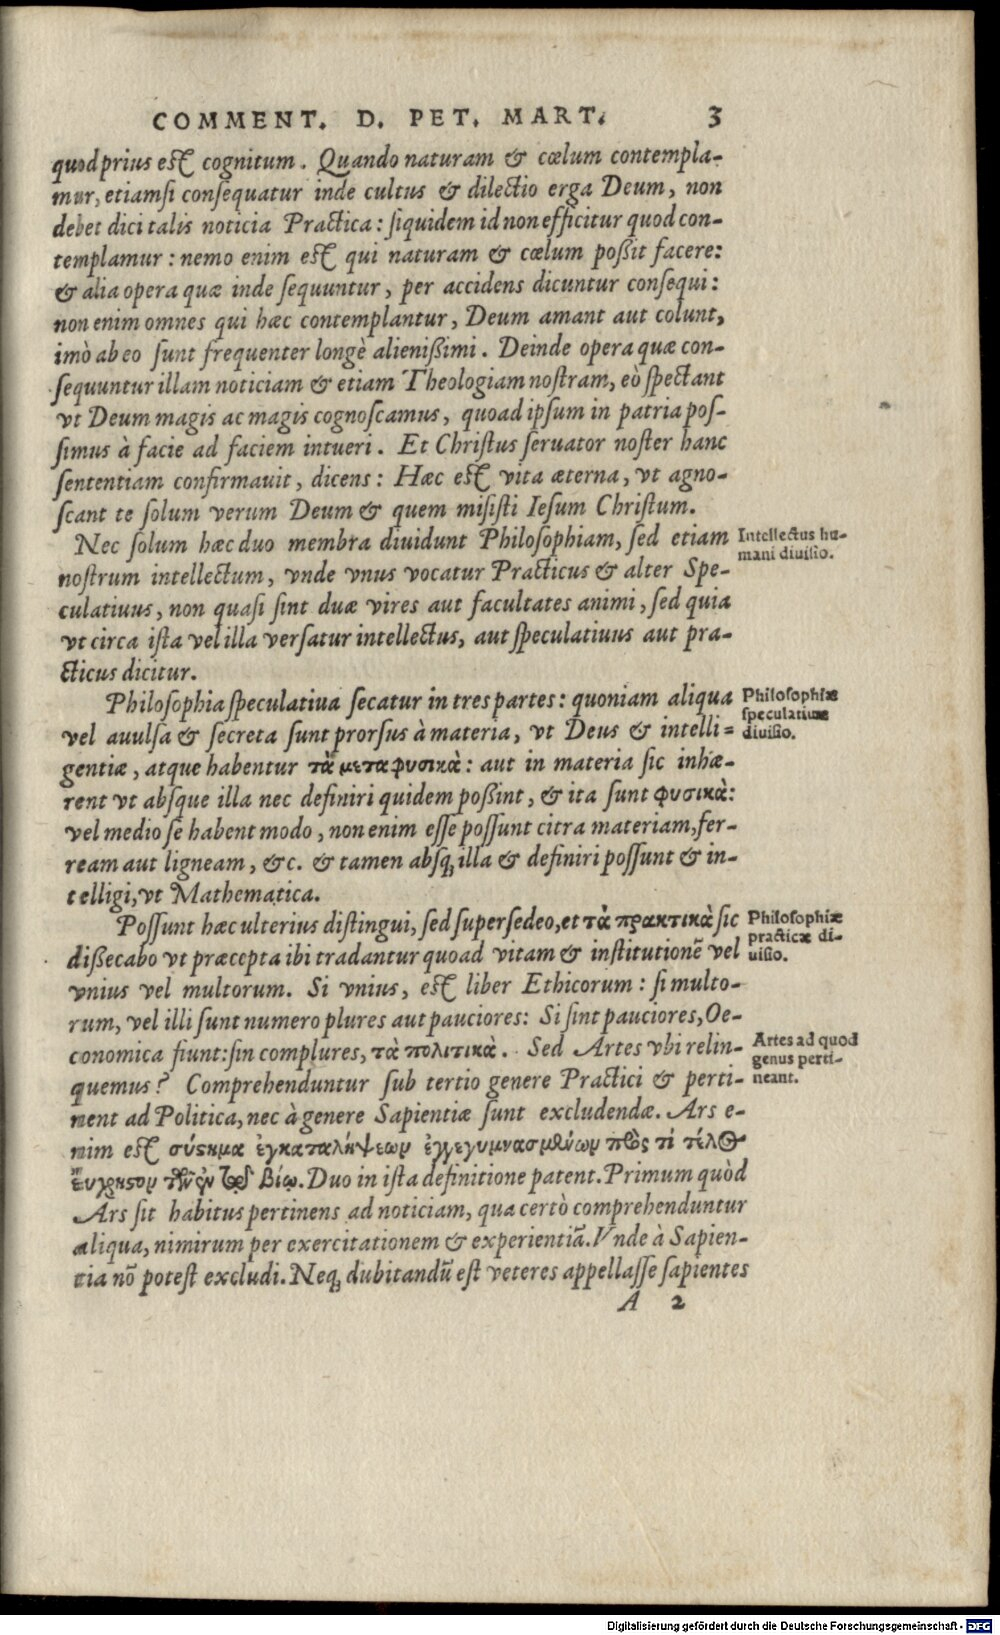 COMMENT. D. PET. MART. 3
quod prius est cognitum. Quando naturam & cœlum contempla-
mur, etiamsi consequatur inde cultus & dilectio erga Deum, non
debet dici talis noticia Practica: siquidem id non efficitur quod con-
templamur: nemo enim est qui naturam & cœlum poßit facere:
& alia opera quæ inde sequuntur, per accidens dicuntur consequi:
non enim omnes qui hæc contemplantur, Deum amant aut colunt,
imò ab eo sunt frequenter longè alienißimi. Deinde opera quæ con-
sequuntur illam noticiam & etiam Theologiam nostram, eò spectant
vt Deum magis ac magis cognoscamus, quoad ipsum in patria pos-
simus à facie ad faciem intueri. Et Christus seruator noster hanc
sententiam confirmauit, dicens: Hæc est vita æterna, vt agno-
scant te solum verum Deum & quem misisti Iesum Christum.
Nec solum hæc duo membra diuidunt Philosophiam, sed etiam
Intellectus hu-
mani diuisio.
nostrum intellectum, vnde vnus vocatur Practicus & alter Spe-
culatiuus, non quasi sint duæ vires aut facultates animi, sed quia
vt circa ista vel illa versatur intellectus, aut speculatiuus aut pra-
cticus dicitur.
Philosophia speculatiua secatur in tres partes: quoniam aliqua
Philosophiæ
speculatiuæ
diuisio.
vel auulsa & secreta sunt prorsus à materia, vt Deus & intelli-
gentiæ, atque habentur τὰ μεταφυσικὰ: aut in materia sic inhæ-
rent vt absque illa nec definiri quidem poßint, & ita sunt φυσικὰ:
vel medio se habent modo, non enim esse possunt citra materiam, fer-
ream aut ligneam, &c. & tamen absq; illa & definiri possunt & in-
telligi, vt Mathematica.
Possunt hæc ulterius distingui, sed supersedeo, et τὰ πρακτικὰ sic
Philosophiæ
practicæ di-
uisio.
dißecabo vt præcepta ibi tradantur quoad vitam & institutionẽ vel
vnius vel multorum. Si vnius, est liber Ethicorum: si multo-
rum, vel illi sunt numero plures aut pauciores: Si sint pauciores, Oe-
conomica fiunt: sin complures, τὰ πολιτικὰ. Sed Artes vbi relin-
Artes ad quod
genus perti-
neant.
quemus? Comprehenduntur sub tertio genere Practici & perti-
nent ad Politica, nec à genere Sapientiæ sunt excludendæ. Ars e-
nim est σύστημα ἐγκαταλήψεων ἐγγεγυμνασμένων πρὸς τὶ τέλος
εὔχρηστον τῶν ἐν τῷ βίῳ. Duo in ista definitione patent. Primum quòd
Ars sit habitus pertinens ad noticiam, qua certò comprehenduntur
aliqua, nimirum per exercitationem & experientiã. Vnde à Sapien-
tia nõ potest excludi. Neq; dubitandũ est veteres appellasse sapientes
A 2
Digitalisierung gefördert durch die Deutsche Forschungsgemeinschaft - DFG